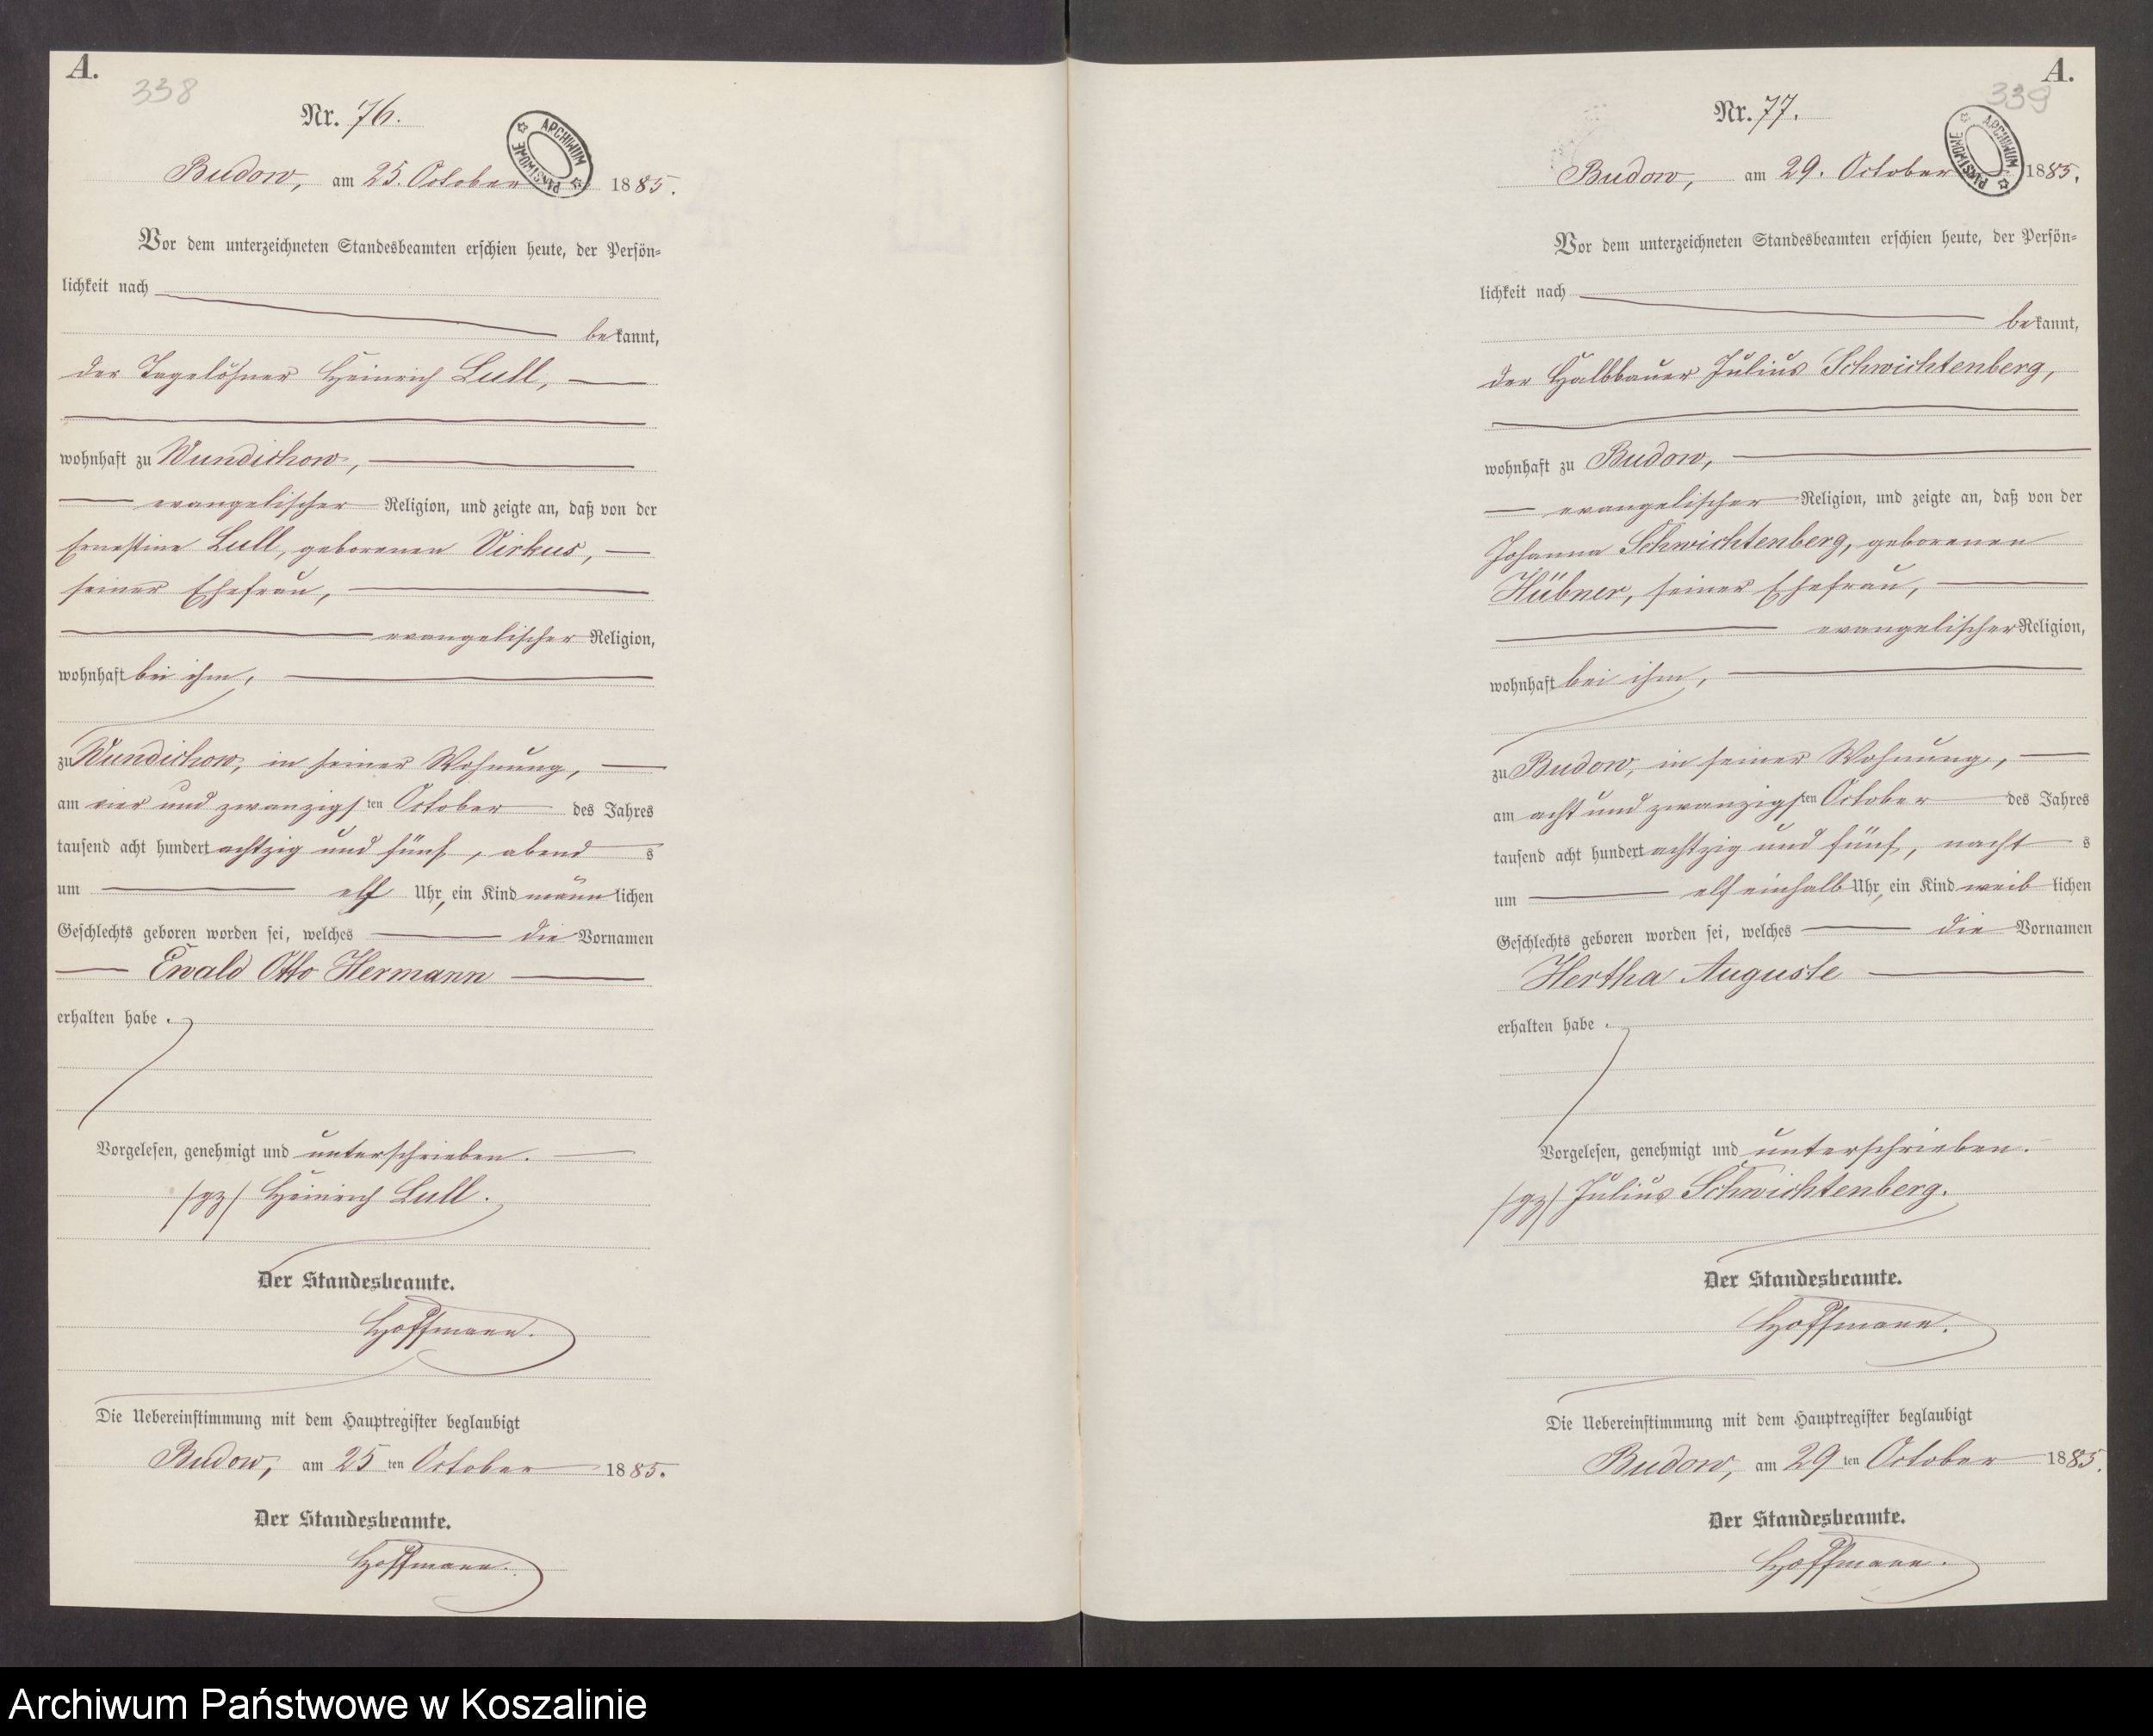 A.
338
Nr. 76.
ARCHIWUM PAŃSTWOWE
Budow, am 25. October 1885.
Vor dem unterzeichneten Standesbeamten erschien heute, der Persön-
lichkeit nach
bekannt,
der Tagelöhner Heinrich Lull,
wohnhaft zu Wundichow,
evangelischer Religion, und zeigte an, daß von der
Ernestine Lull, geborenen Virkus,
seiner Ehefrau,
evangelischer Religion,
wohnhaft bei ihm,
zu Wundichow, in seiner Wohnung,
am vier und zwanzigsten October des Jahres
tausend acht hundert achtzig und fünf, abends
um elf Uhr, ein Kind männlichen
Geschlechts geboren worden sei, welches die Vornamen
Ewald Otto Hermann
erhalten habe.
Vorgelesen, genehmigt und unterschrieben.
/gz/ Heinrich Lull.
Der Standesbeamte.
Hoffmann.
Die Uebereinstimmung mit dem Hauptregister beglaubigt
Budow, am 25ten October 1885.
Der Standesbeamte.
Hoffmann.
A.
339
Nr. 77.
ARCHIWUM PAŃSTWOWE
Budow, am 29. October 1885.
Vor dem unterzeichneten Standesbeamten erschien heute, der Persön-
lichkeit nach
bekannt,
der Halbbauer Julius Schwichtenberg,
wohnhaft zu Budow,
evangelischer Religion, und zeigte an, daß von der
Johanna Schwichtenberg, geborenen
Hübner, seiner Ehefrau,
evangelischer Religion,
wohnhaft bei ihm,
zu Budow, in seiner Wohnung,
am acht und zwanzigsten October des Jahres
tausend acht hundert achtzig und fünf, nachts
um elf einhalb Uhr, ein Kind weiblichen
Geschlechts geboren worden sei, welches die Vornamen
Hertha Auguste
erhalten habe.
Vorgelesen, genehmigt und unterschrieben.
/gz/ Julius Schwichtenberg.
Der Standesbeamte.
Hoffmann.
Die Uebereinstimmung mit dem Hauptregister beglaubigt
Budow, am 29ten October 1885.
Der Standesbeamte.
Hoffmann.
Archiwum Państwowe w Koszalinie